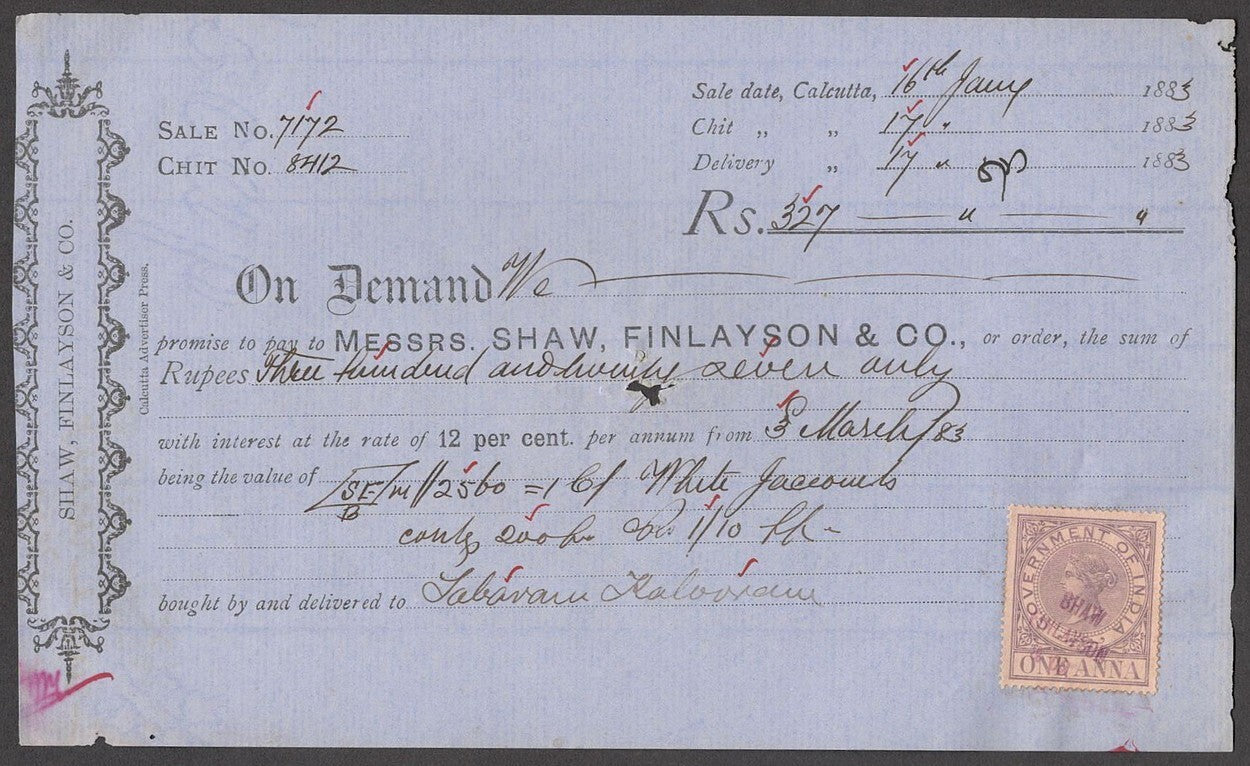 Sale date, Calcutta, 16th Jany 1883
SALE NO. 7172
Chit „ „ 17 " 1883
CHIT NO. 8412
Delivery „ 17 " 1883
Rs. 327 — " — "
On Demand We
promise to pay to MESSRS. SHAW, FINLAYSON & CO., or order, the sum of
Rupees Three hundred and twenty seven only
with interest at the rate of 12 per cent. per annum from 3 March/83
being the value of 2560 = 1 C/ White Jaconets
200 1/10
bought by and delivered to
SHAW, FINLAYSON & CO.
Calcutta Advertiser Press.
GOVERNMENT OF INDIA
SHAW
FINLAYSON
ONE ANNA